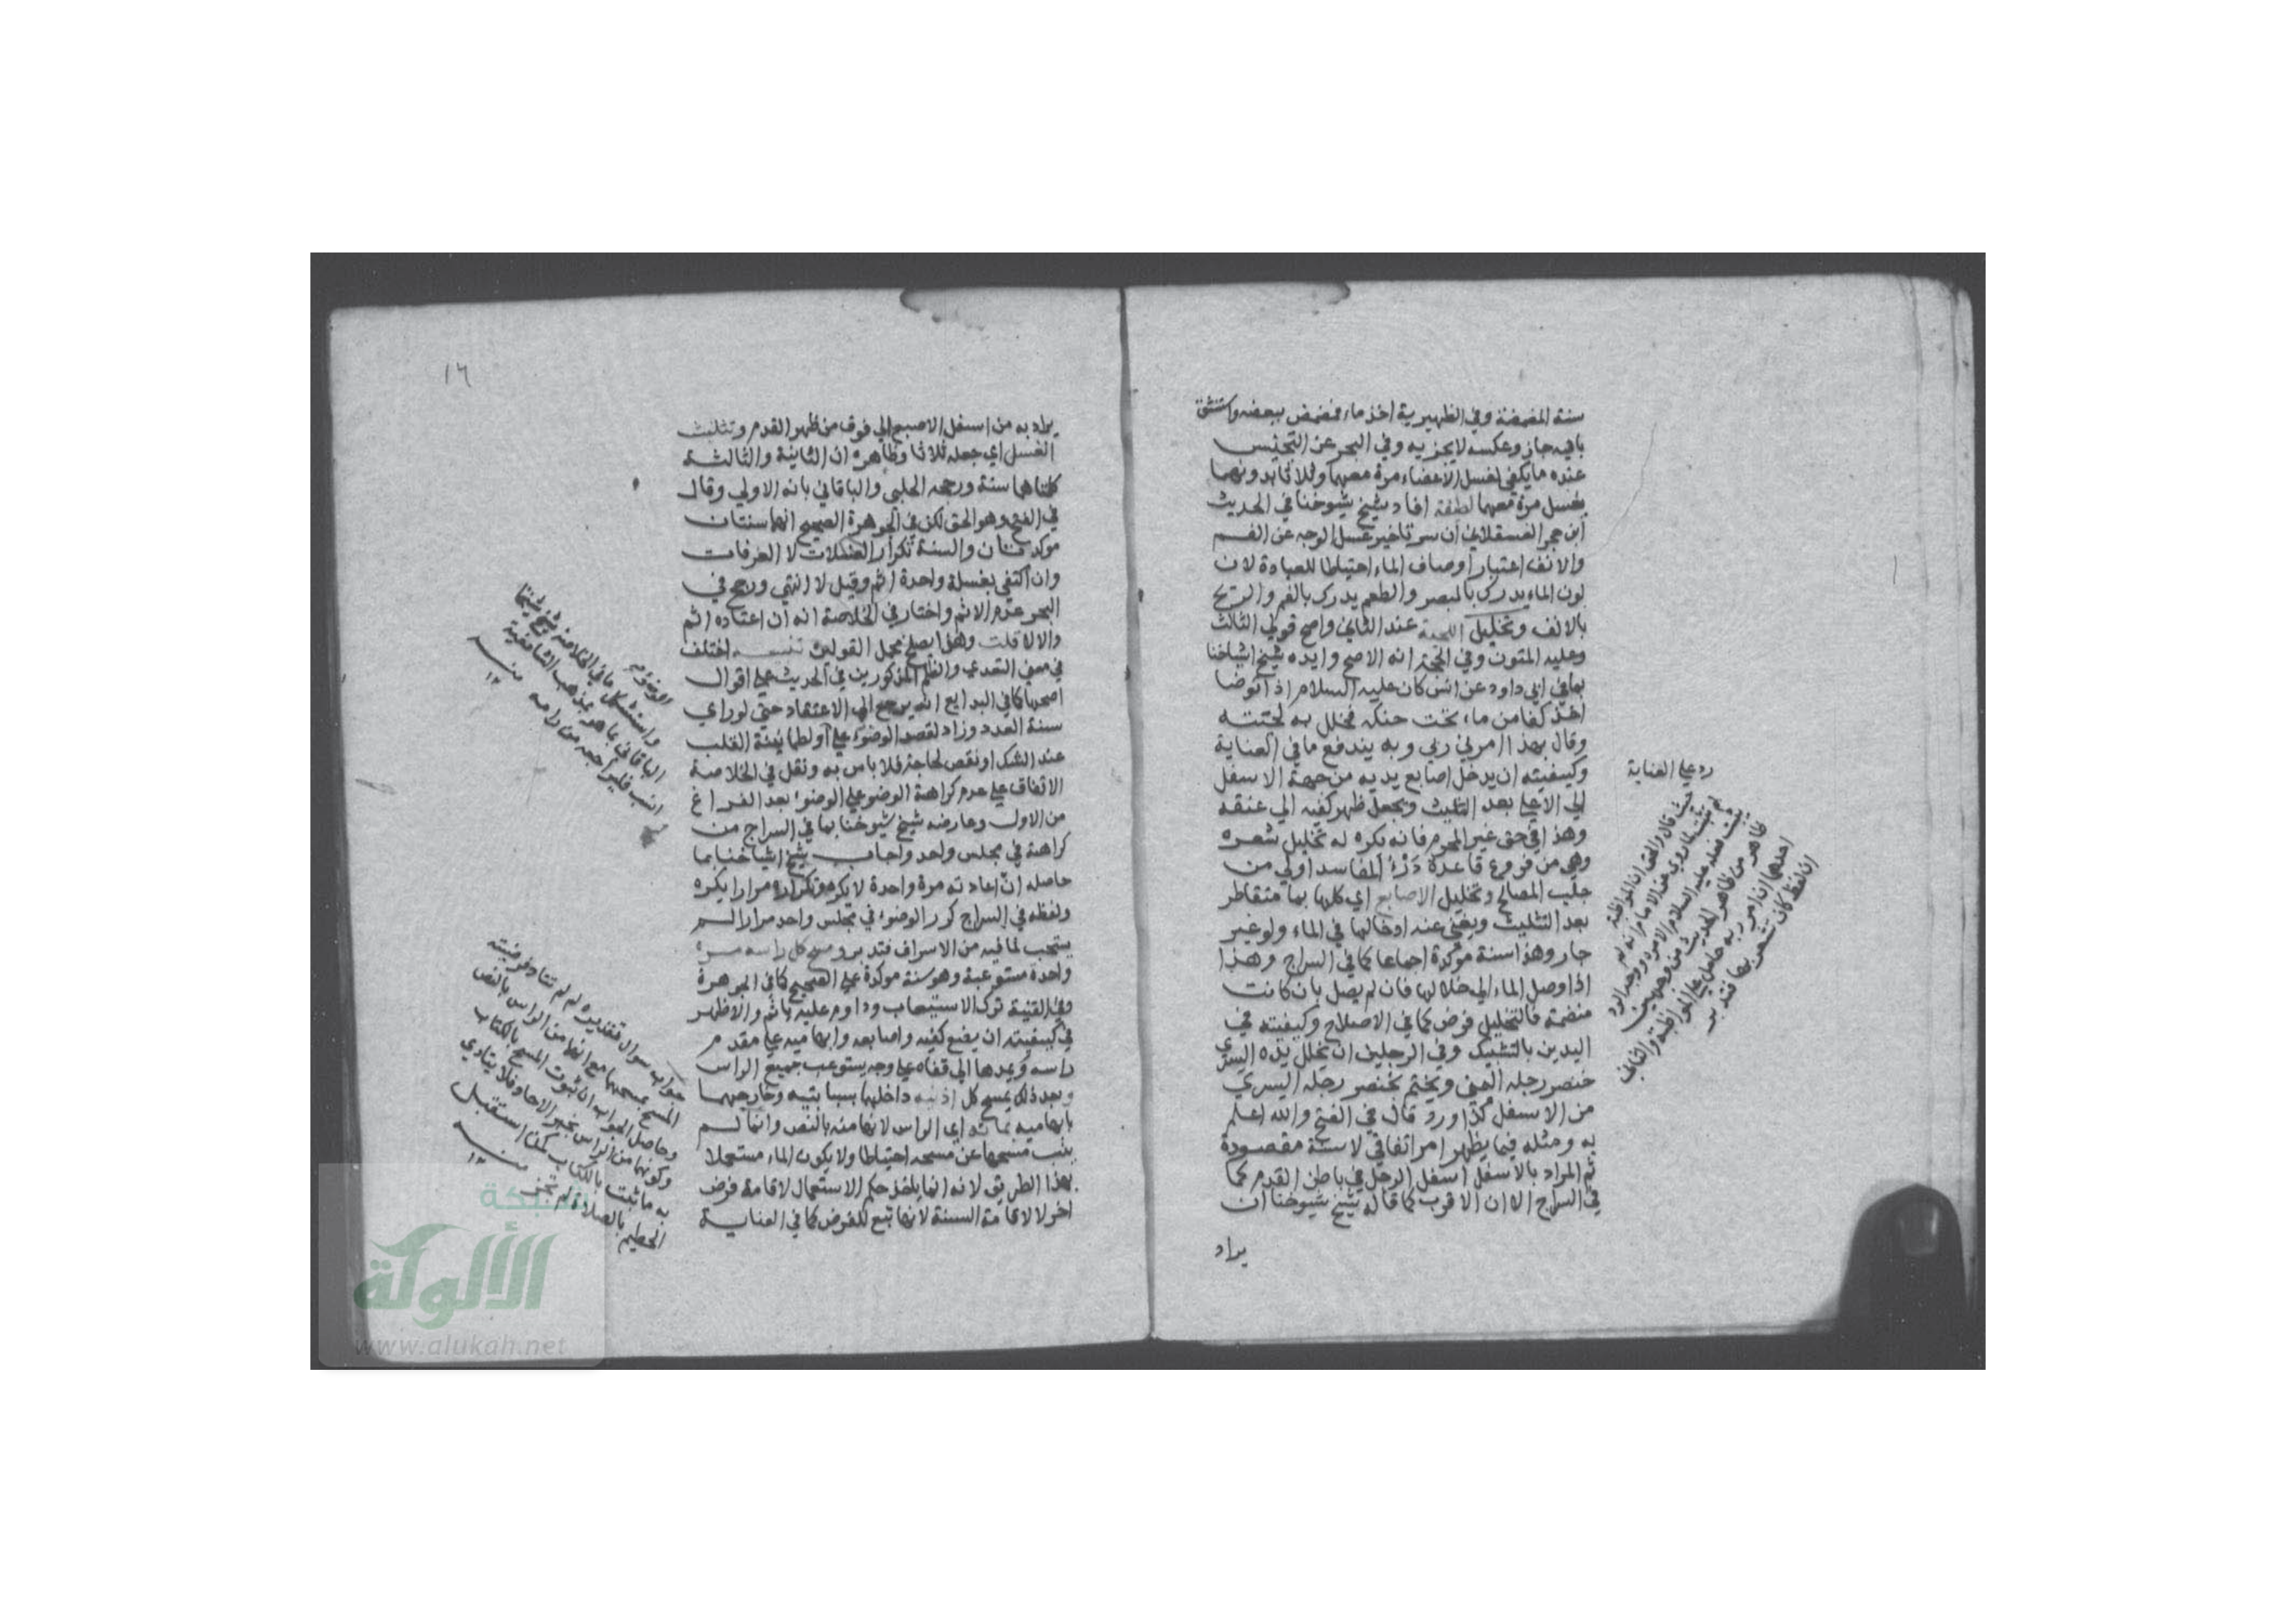 سنة المضمضة وفي الظهيرية اخذ ماء فمضمض ببعضه واستنشق
باقيه جاز وعكسه لا يجزيه وفي البحر عن التجنيس
عنده ما يكفي لغسل الاعضاء مرة معهما وثلاثا بدونهما
يغسل مرة معهما لطيفة افاد شيخ شيوخنا في الحديث
ابن حجر العسقلاني ان سر تاخير غسل الوجه عن الفم
والانف اعتبار اوصاف الماء احتياطا للعبادة لان
لون الماء يدرك بالمبصر والطعم يدرك بالفم والريح
بالانف وتخليل اللحية عند الثاني واصح قولي الثالث
وعليه المتون وفي الحجة انه الاصح وايده شيخ اشياخنا
بما في ابي داود عن انس كان عليه السلام اذا توضا
اخذ كفا من ماء تحت حنكه فخلل به لحيته
وقال بهذا امرني ربي وبه يندفع ما في العناية
وكيفيته ان يدخل اصابع يديه من جهة الاسفل
الي الاعلي بعد التثليث ويجعل ظهر كفيه الي عنقه
وهذا في حق غير المحرم فانه يكره له تخليل شعره
وهي من فروع قاعدة درء المفاسد اولي من
جلب المصالح وتخليل الاصابع اي كلها بما متقاطر
بعد التثليث ويغني عنه ادخالها في الماء ولو غير
جار وهذا سنة موكدة اجماعا كما في السراج وهذا
اذا وصل الماء الي خلالها فان لم يصل بان كانت
منضمة فالتخليل فرض كما في الاصلاح وكيفيته في
اليدين بالتشبيك وفي الرجلين ان يخلل بيده اليسري
خنصر رجله اليمني ويختم بخنصر رجله اليسري
من الاسفل كذا ورد قال في الفتح والله اعلم
به ومثله فيما يظهر امر اتفاقي لا سنة مقصودة
ثم المراد بالاسفل اسفل الرجل في باطن القدم كما
في السراج الا ان الاقرب كما قاله شيخ شيوخنا ان
يراد
رد علي العناية
حيث قال والحق ان المواظبة
لم تثبت لما روي عن الامام انه لم
يثبت عنه عليه السلام الا مرة ووجه الرد
ظاهر من ظاهر الحديث من وجهين
احدهما ان امر ربه حامل علي المواظبة والثاني
ان لفظ كان تشعر بها فتدبر
١٦
يراد به من اسفل الاصبع الي فوق من ظهر القدم وتثليث
الغسل اي جعله ثلاثا وظاهره ان الثانية والثالثة
كلتاهما سنة ورجحه الحلبي والباقاني بانه الاولي وقال
في الفتح وهو الحق لكن في الجوهرة الصحيح انهما سنتان
موكدتان والسنة تكرار الغسلات لا الغرفات
وان اكتفي بغسلة واحدة اثم وقيل لا انتهي ورجح في
البحر عدم الاثم واختار في الخلاصة انه ان اعتاده اثم
والا لا قلت وهذا يصلح محمل القولين تنبيه اختلف
في معني التعدي والظلم المذكورين في الحديث علي اقوال
اصحها كما في البدايع انه يرجع الي الاعتقاد حتي لو راي
سنة العدد وزاد لقصد الوضوء علي او لطمانينة القلب
عند الشك او نقص لحاجة فلا باس به ونقل في الخلاصة
الاتفاق علي عدم كراهة الوضوء علي الوضوء بعد الفراغ
من الاول وعارضه شيخ شيوخنا بما في السراج من
كراهة في مجلس واحد واجاب شيخ اشياخنا بما
حاصله ان اعادته مرة واحدة لا يكره وتكراره مرارا يكره
ولفظه في السراج كرر الوضوء في مجلس واحد مرارا لم
يستحب لما فيه من الاسراف فتدبر ومسح كل راسه مرة
واحدة مستوعبة وهو سنة موكدة علي الصحيح كما في الجوهرة
وفي القنية ترك الاستيعاب وداوم عليه ياثم والاظهر
في كيفيته ان يضع كفيه واصابعه وابهاميه علي مقدم
راسه ويمدها الي قفاه علي وجه يستوعب جميع الراس
وبعد ذلك يمسح كل اذنيه داخلهما بسبابتيه وخارجهما
بابهاميه بمائه اي الراس لانهما منه بالنص وانما لم
ينب مسحهما عن مسحه احتياطا ولا يكون الماء مستعملا
بهذا الطريق لانه انما ياخذ حكم الاستعمال لاقامة فرض
اخر لا لاقامة السنة لانها تبع للفرض كما في العناية
واستشكل ما في الخلاصة شيخ شيخنا
الباقاني بما هو بمذهب الشافعية
انسب فليراجعه من رامه منه
١٢
جواب سوال تقديره لم لم تتاد فرضية
المسح بمسحهما مع انهما من الراس بالنص
وحاصل الجواب ان ثبوت المسح بالكتاب
وكونهما من الراس بخبر الاحاد فلا يتادي
به ما ثبت بالكتاب كمن استقبل
الحطيم بالصلاة لم تجز منه
١٢
شبكة
الألوكة
www.alukah.net